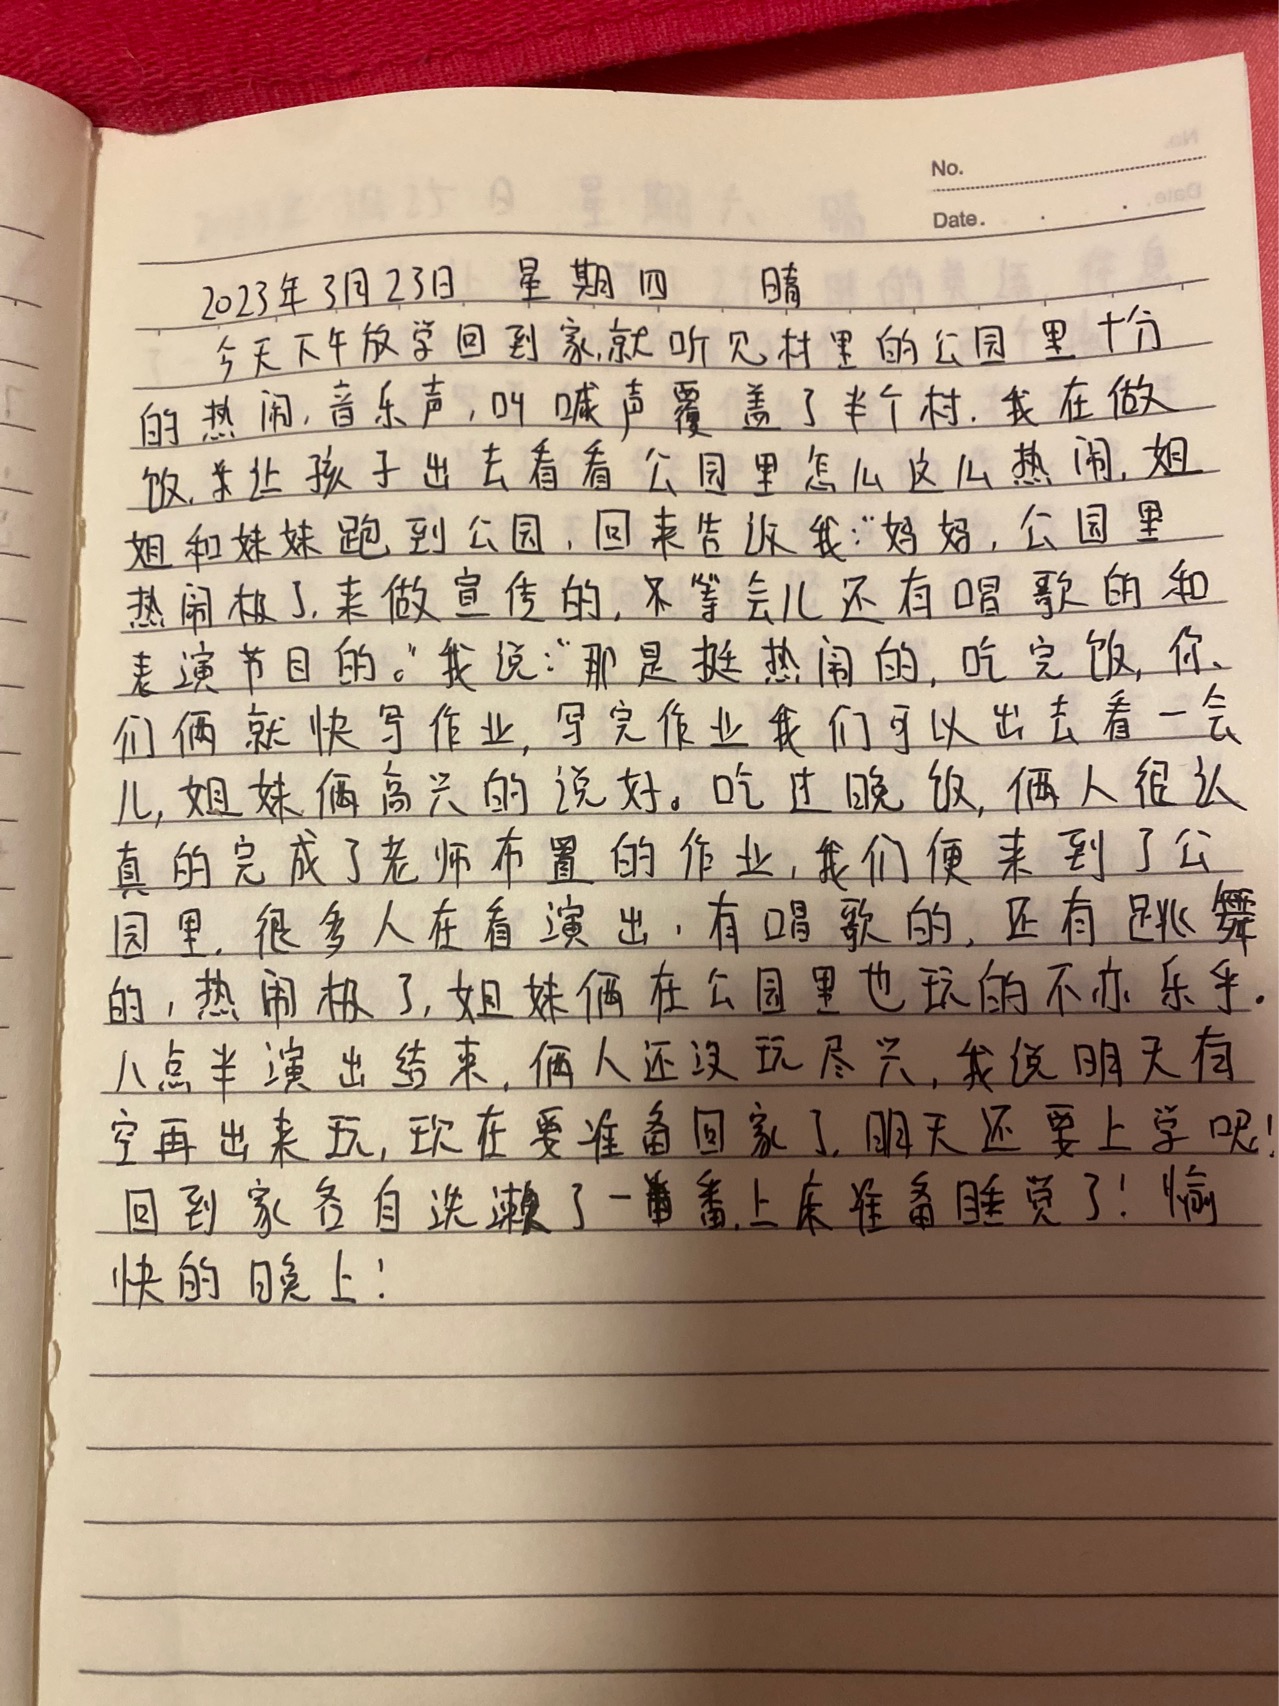 No.
Date.
2023年3月23日 星期四 晴
今天下午放学回到家,就听见村里的公园里十分
的热闹,音乐声,叫喊声覆盖了半个村.我在做
饭,让孩子出去看看公园里怎么这么热闹,姐
姐和妹妹跑到公园,回来告诉我:"妈妈,公园里
热闹极了,来做宣传的,不等会儿还有唱歌的和
表演节目的。"我说:"那是挺热闹的,吃完饭,你、
们俩就快写作业,写完作业我们可以出去看一会
儿,姐妹俩高兴的说好。吃过晚饭,俩人很认
真的完成了老师布置的作业,我们便来到了公
园里,很多人在看演出,有唱歌的,还有跳舞
的,热闹极了,姐妹俩在公园里也玩的不亦乐乎.
八点半演出结束,俩人还没玩尽兴,我说明天有
空再出来玩,现在要准备回家了,明天还要上学呢!
回到家各自洗漱了一番,上床准备睡觉了!愉
快的晚上!